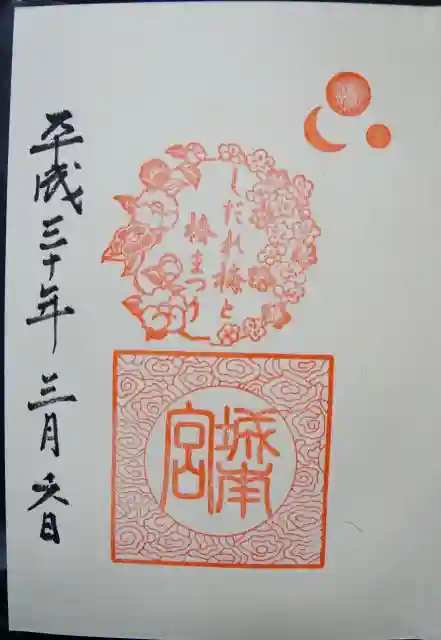 しだれ梅と
椿まつり
城南
宮
平成三十年三月六日